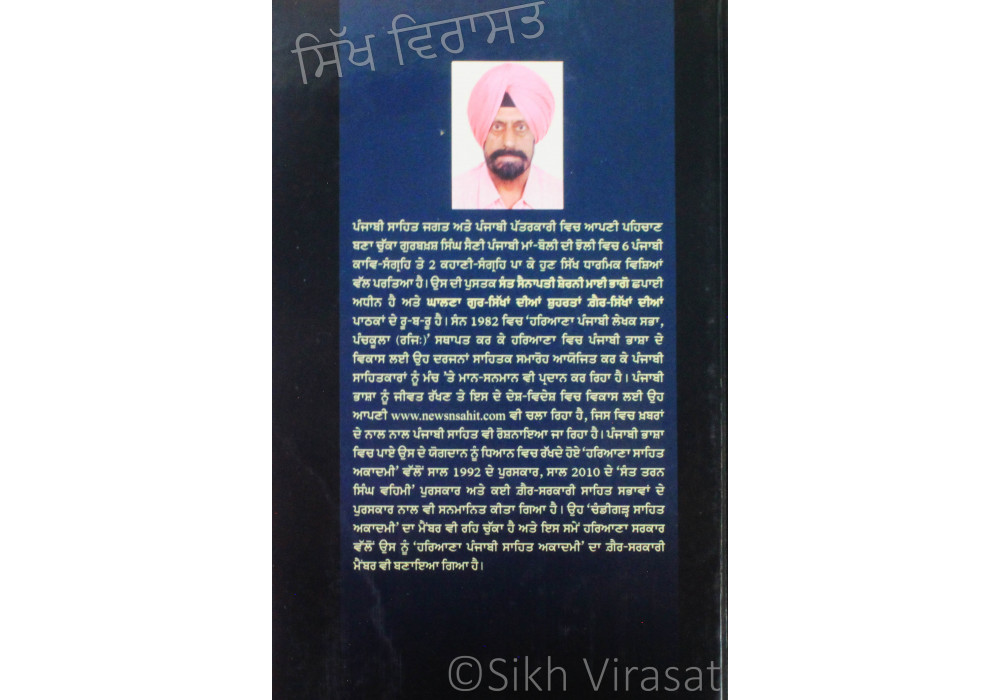 ਸਿੱਖ ਵਿਰਾਸਤ
ਪੰਜਾਬੀ ਸਾਹਿਤ ਜਗਤ ਅਤੇ ਪੰਜਾਬੀ ਪੱਤਰਕਾਰੀ ਵਿਚ ਆਪਣੀ ਪਹਿਚਾਣ
ਬਣਾ ਚੁੱਕਾ ਗੁਰਬਖ਼ਸ਼ ਸਿੰਘ ਸੈਣੀ ਪੰਜਾਬੀ ਮਾਂ-ਬੋਲੀ ਦੀ ਝੋਲੀ ਵਿਚ 6 ਪੰਜਾਬੀ
ਕਾਵਿ-ਸੰਗ੍ਰਹਿ ਤੇ 2 ਕਹਾਣੀ-ਸੰਗ੍ਰਹਿ ਪਾ ਕੇ ਹੁਣ ਸਿੱਖ ਧਾਰਮਿਕ ਵਿਸ਼ਿਆਂ
ਵੱਲ ਪਰਤਿਆ ਹੈ। ਉਸ ਦੀ ਪੁਸਤਕ ਸੰਤ ਸੈਨਾਪਤੀ ਸ਼ੇਰਨੀ ਮਾਈ ਭਾਗੋ ਛਪਾਈ
ਅਧੀਨ ਹੈ ਅਤੇ ਘਾਲਣਾ ਗੁਰ-ਸਿੱਖਾਂ ਦੀਆਂ ਸ਼ੁਹਰਤਾਂ ਗ਼ੈਰ-ਸਿੱਖਾਂ ਦੀਆਂ
ਪਾਠਕਾਂ ਦੇ ਰੂ-ਬ-ਰੂ ਹੈ। ਸੰਨ 1982 ਵਿਚ ‘ਹਰਿਆਣਾ ਪੰਜਾਬੀ ਲੇਖਕ ਸਭਾ,
ਪੰਚਕੂਲਾ (ਰਜਿ:)’ ਸਥਾਪਤ ਕਰ ਕੇ ਹਰਿਆਣਾ ਵਿਚ ਪੰਜਾਬੀ ਭਾਸ਼ਾ ਦੇ
ਵਿਕਾਸ ਲਈ ਉਹ ਦਰਜਨਾਂ ਸਾਹਿਤਕ ਸਮਾਰੋਹ ਆਯੋਜਿਤ ਕਰ ਕੇ ਪੰਜਾਬੀ
ਸਾਹਿਤਕਾਰਾਂ ਨੂੰ ਮੰਚ ’ਤੇ ਮਾਨ-ਸਨਮਾਨ ਵੀ ਪ੍ਰਦਾਨ ਕਰ ਰਿਹਾ ਹੈ। ਪੰਜਾਬੀ
ਭਾਸ਼ਾ ਨੂੰ ਜੀਵਤ ਰੱਖਣ ਤੇ ਇਸ ਦੇ ਦੇਸ਼-ਵਿਦੇਸ਼ ਵਿਚ ਵਿਕਾਸ ਲਈ ਉਹ
ਆਪਣੀ www.newsnsahit.com ਵੀ ਚਲਾ ਰਿਹਾ ਹੈ, ਜਿਸ ਵਿਚ ਖ਼ਬਰਾਂ
ਦੇ ਨਾਲ ਨਾਲ ਪੰਜਾਬੀ ਸਾਹਿਤ ਵੀ ਰੋਸ਼ਨਾਇਆ ਜਾ ਰਿਹਾ ਹੈ। ਪੰਜਾਬੀ ਭਾਸ਼ਾ
ਵਿਚ ਪਾਏ ਉਸ ਦੇ ਯੋਗਦਾਨ ਨੂੰ ਧਿਆਨ ਵਿਚ ਰੱਖਦੇ ਹੋਏ ‘ਹਰਿਆਣਾ ਸਾਹਿਤ
ਅਕਾਦਮੀ’ ਵੱਲੋਂ ਸਾਲ 1992 ਦੇ ਪੁਰਸਕਾਰ, ਸਾਲ 2010 ਦੇ ‘ਸੰਤ ਤਰਨ
ਸਿੰਘ ਵਹਿਮੀ’ ਪੁਰਸਕਾਰ ਅਤੇ ਕਈ ਗ਼ੈਰ-ਸਰਕਾਰੀ ਸਾਹਿਤ ਸਭਾਵਾਂ ਦੇ
ਪੁਰਸਕਾਰ ਨਾਲ ਵੀ ਸਨਮਾਨਿਤ ਕੀਤਾ ਗਿਆ ਹੈ। ਉਹ ‘ਚੰਡੀਗੜ੍ਹ ਸਾਹਿਤ
ਅਕਾਦਮੀ’ ਦਾ ਮੈਂਬਰ ਵੀ ਰਹਿ ਚੁੱਕਾ ਹੈ ਅਤੇ ਇਸ ਸਮੇਂ ਹਰਿਆਣਾ ਸਰਕਾਰ
ਵੱਲੋਂ ਉਸ ਨੂੰ ‘ਹਰਿਆਣਾ ਪੰਜਾਬੀ ਸਾਹਿਤ ਅਕਾਦਮੀ’ ਦਾ ਗ਼ੈਰ-ਸਰਕਾਰੀ
ਮੈਂਬਰ ਵੀ ਬਣਾਇਆ ਗਿਆ ਹੈ।
©Sikh Virasat